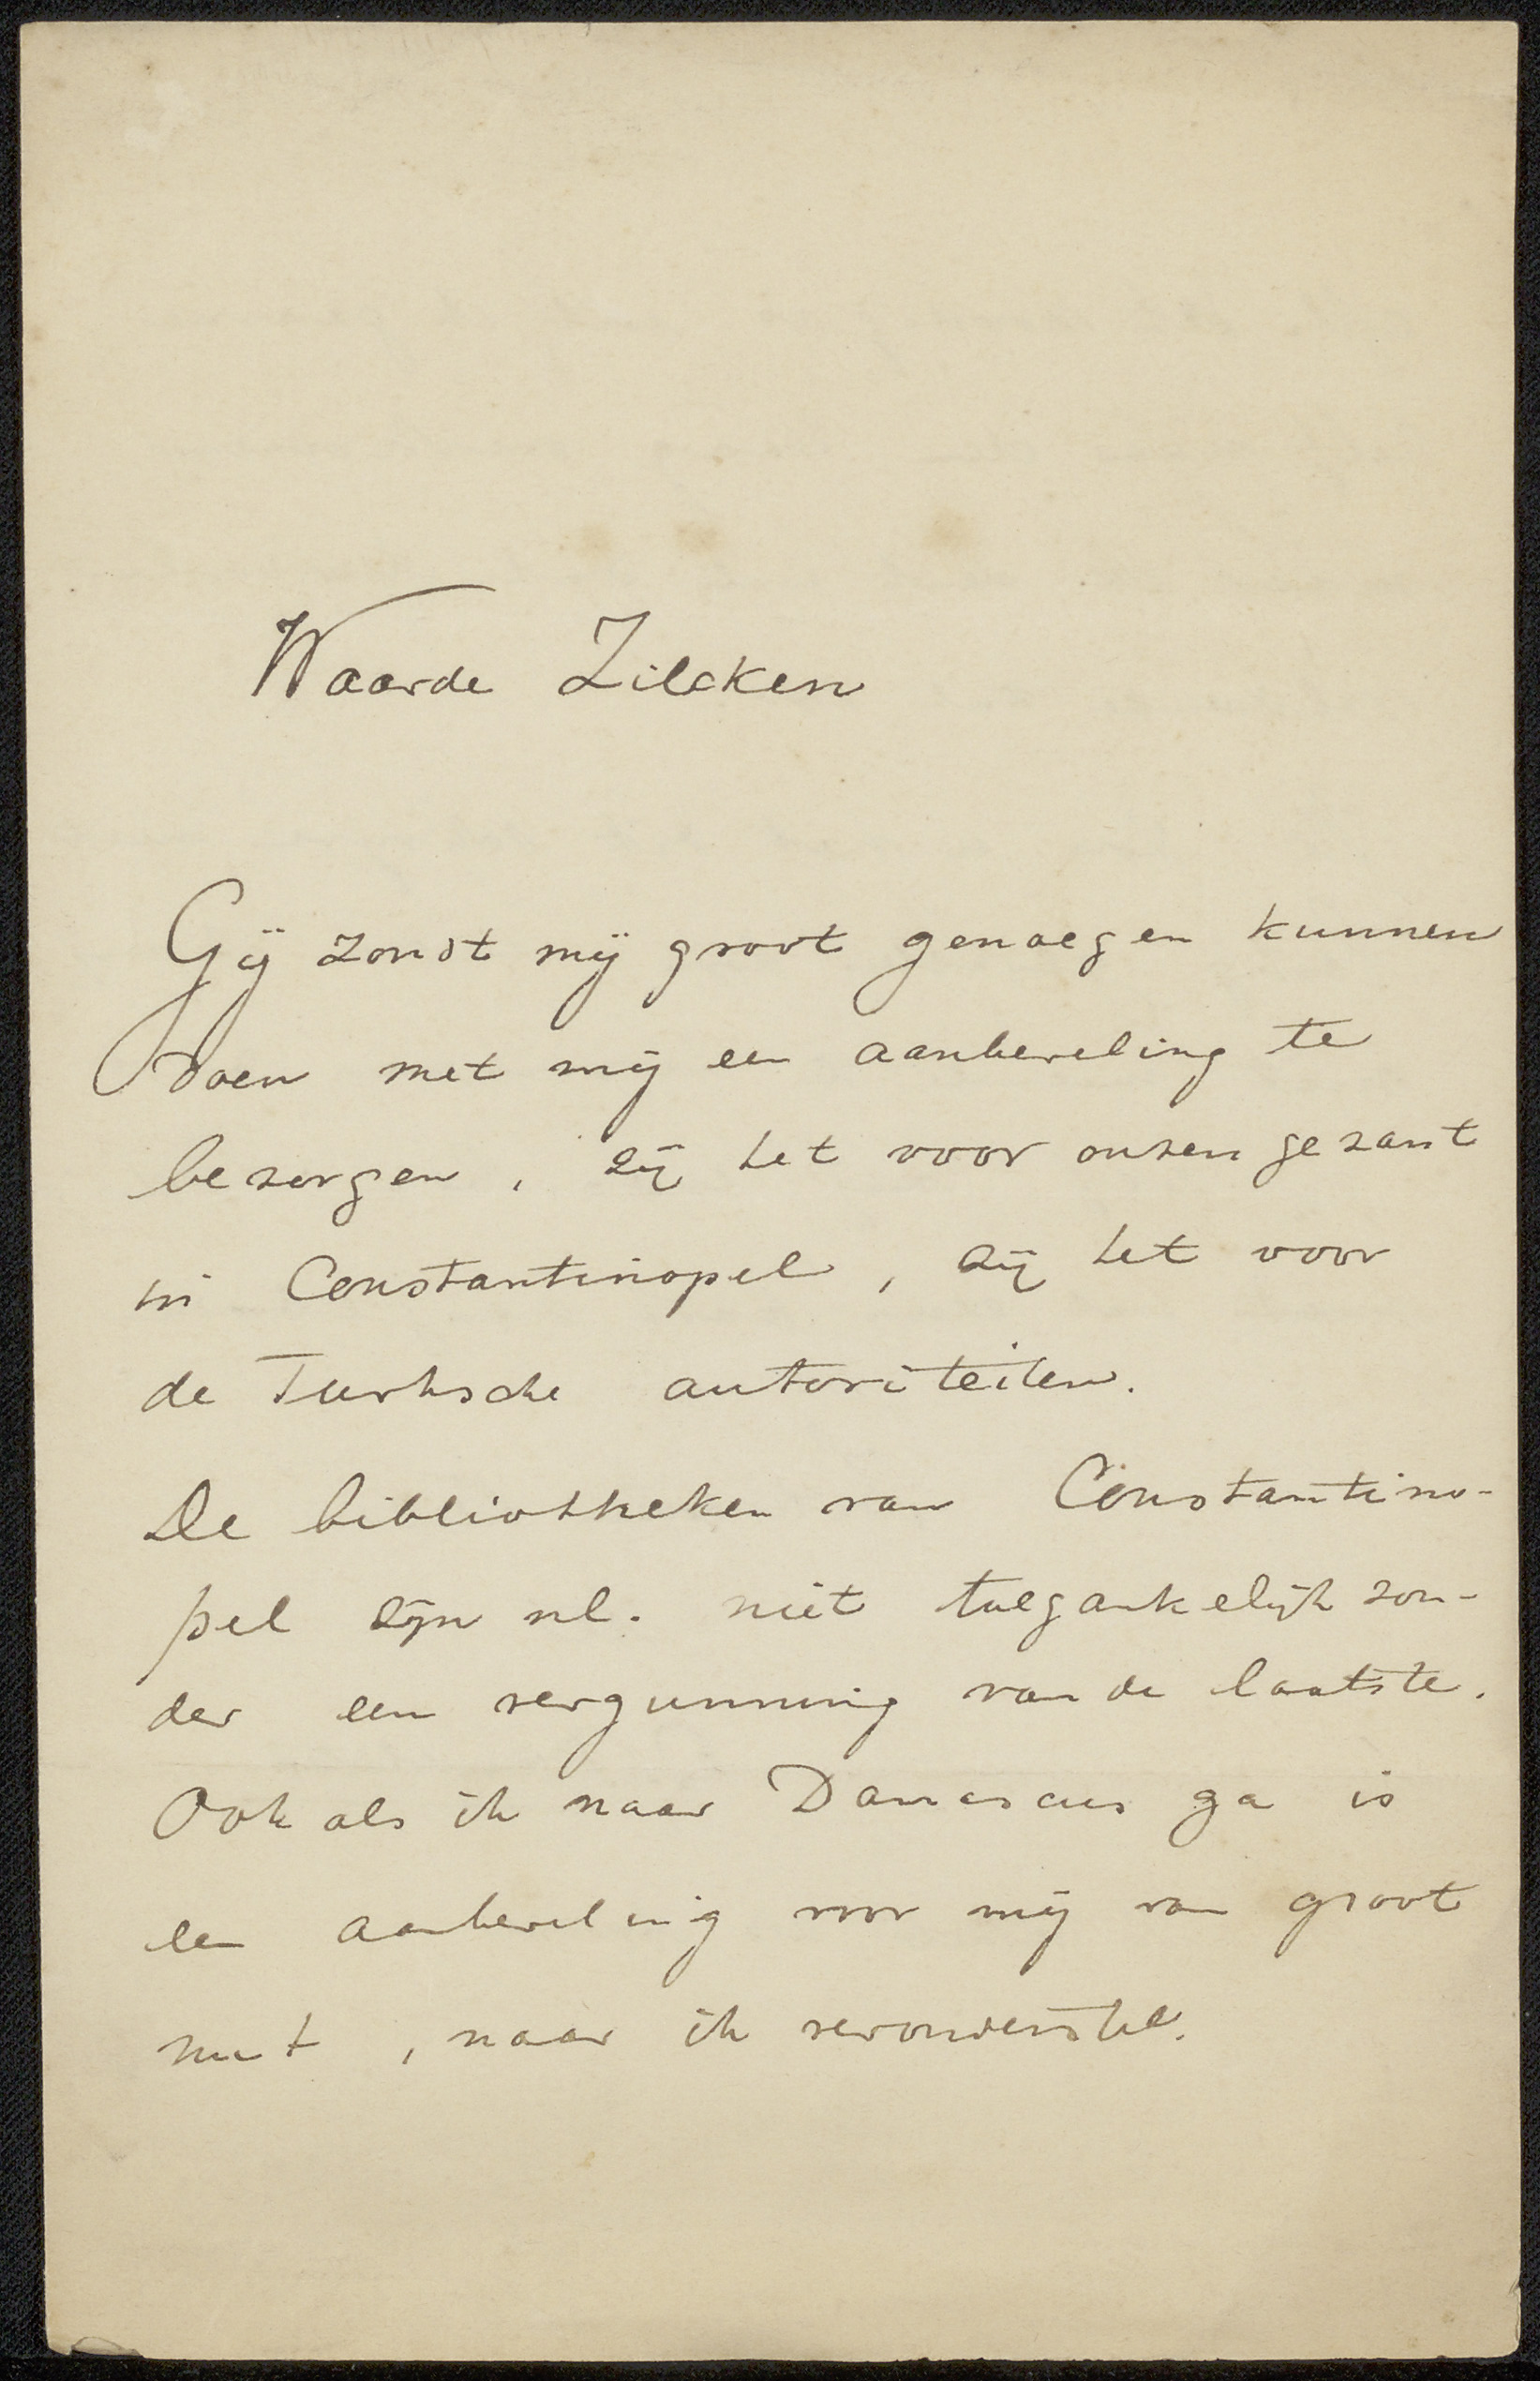 Waarde Zilcken
Gij zondt mij groot genoegen kunnen
doen met mij een aanbeveling te
bezorgen, zij het voor onzen gezant
in Constantinopel, zij het voor
de Turksche autoriteiten.
De bibliotheken van Constantino-
pel zijn nl. niet toegankelijk zon-
der een vergunning van de laatste.
Ook als ik naar Damascus ga is
een aanbeveling voor mij van groot
nut, naar ik veronderstel.